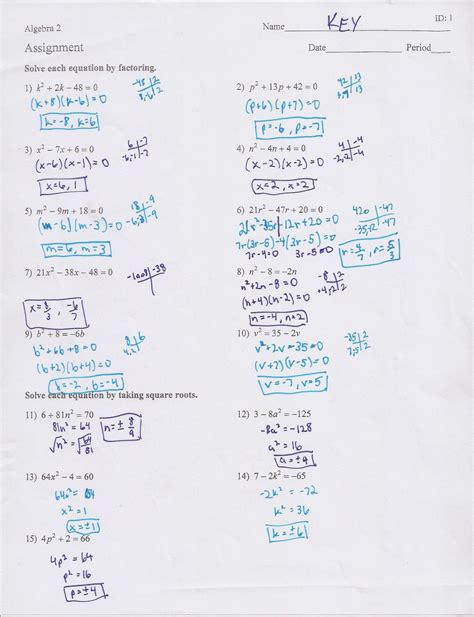 Algebra 2
Name KEY
ID: 1
Assignment
Date Period
Solve each equation by factoring.
1) k² + 2k − 48 = 0
(k+8)(k−6)=0
k=-8, k=6
-48 | 2
8,-6 | 2
2) p² + 13p + 42 = 0
(p+6)(p+7)=0
p=-6, p=-7
42 | 13
3) x² − 7x + 6 = 0
(x−6)(x−1)=0
x=6, 1
6 | -7
-6,-1 | -7
4) n² − 4n + 4 = 0
(x−2)(x−2)=0
x=2, x=2
4 | -4
-2,-2 | -4
5) m² − 9m + 18 = 0
(m−6)(m−3)=0
m=6, m=3
18 | -9
-6,-3 | -9
6) 21r² − 47r + 20 = 0
21r²−35r−12r+20=0
7r(3r−5)−4(3r−5)=0
7r-4=0 3r-5=0
r=4/7, r=5/3
420 | -47
-35,-12 | -47
7) 21x² − 38x − 48 = 0
-1008 | -38
x=8/3, -6/7
8) n² − 8 = −2n
n²+2n−8=0
(n+4)(n−2)=0
n=-4, n=2
-8 | 2
+4,-2 | 2
9) b² + 8 = −6b
b²+6b+8=0
(b+2)(b+4)=0
b=-2, b=-4
8 | 6
4,2
10) v² = 35 − 2v
v²+2v−35=0
(v+7)(v−5)=0
v=-7, v=5
-35 | 2
7,-5 | 2
Solve each equation by taking square roots.
11) 6 + 81n² = 70
81n² = 64
√n² = √64/81
n=± 8/9
12) 3 − 8a² = −125
-8a² = -128
a² = 16
a=±4
13) 64x² − 4 = 60
64x² = 64
x² = 1
x=±1
14) 7 − 2k² = −65
-2k² = -72
k² = 36
k=±6
15) 4p² + 2 = 66
4p² = 64
p² = 16
p=±4